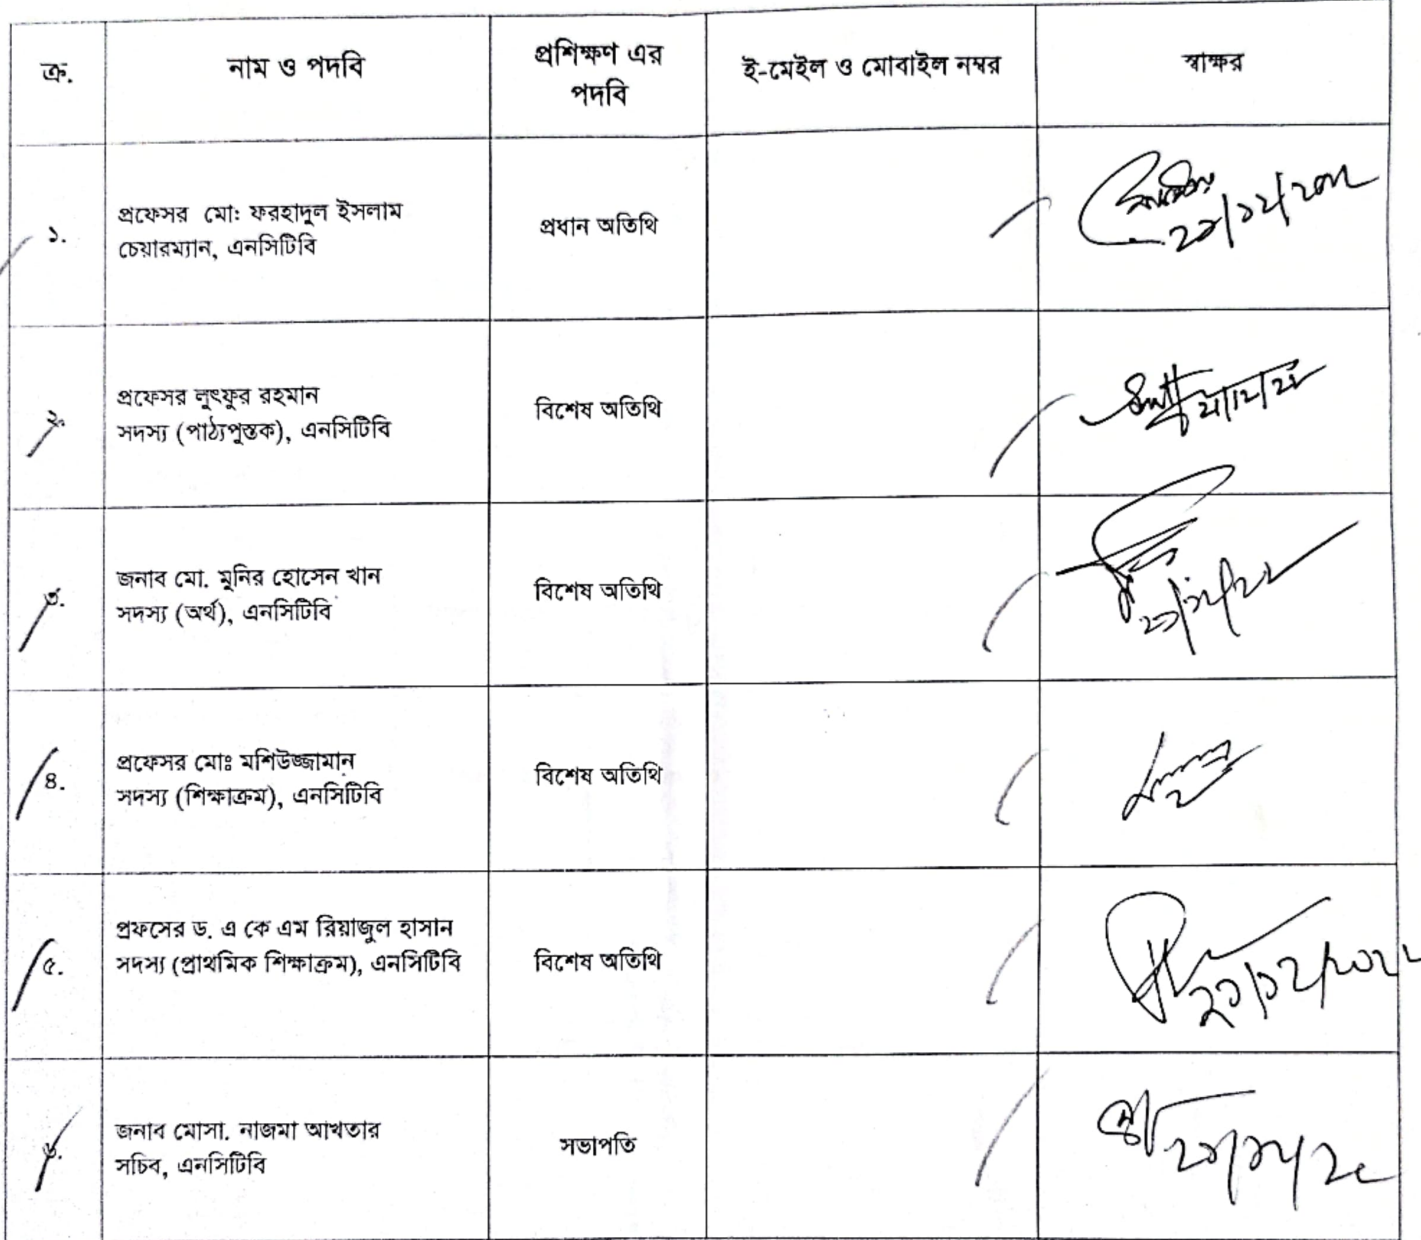 ক্র.
নাম ও পদবি
প্রশিক্ষণ এর
পদবি
ই-মেইল ও মোবাইল নম্বর
স্বাক্ষর
১.
প্রফেসর মো: ফরহাদুল ইসলাম
চেয়ারম্যান, এনসিটিবি
প্রধান অতিথি
২.
প্রফেসর লুৎফুর রহমান
সদস্য (পাঠ্যপুস্তক), এনসিটিবি
বিশেষ অতিথি
৩.
জনাব মো. মুনির হোসেন খান
সদস্য (অর্থ), এনসিটিবি
বিশেষ অতিথি
৪.
প্রফেসর মোঃ মশিউজ্জামান
সদস্য (শিক্ষাক্রম), এনসিটিবি
বিশেষ অতিথি
৫.
প্রফসের ড. এ কে এম রিয়াজুল হাসান
সদস্য (প্রাথমিক শিক্ষাক্রম), এনসিটিবি
বিশেষ অতিথি
২১/১২/২০২২
৬.
জনাব মোসা. নাজমা আখতার
সচিব, এনসিটিবি
সভাপতি